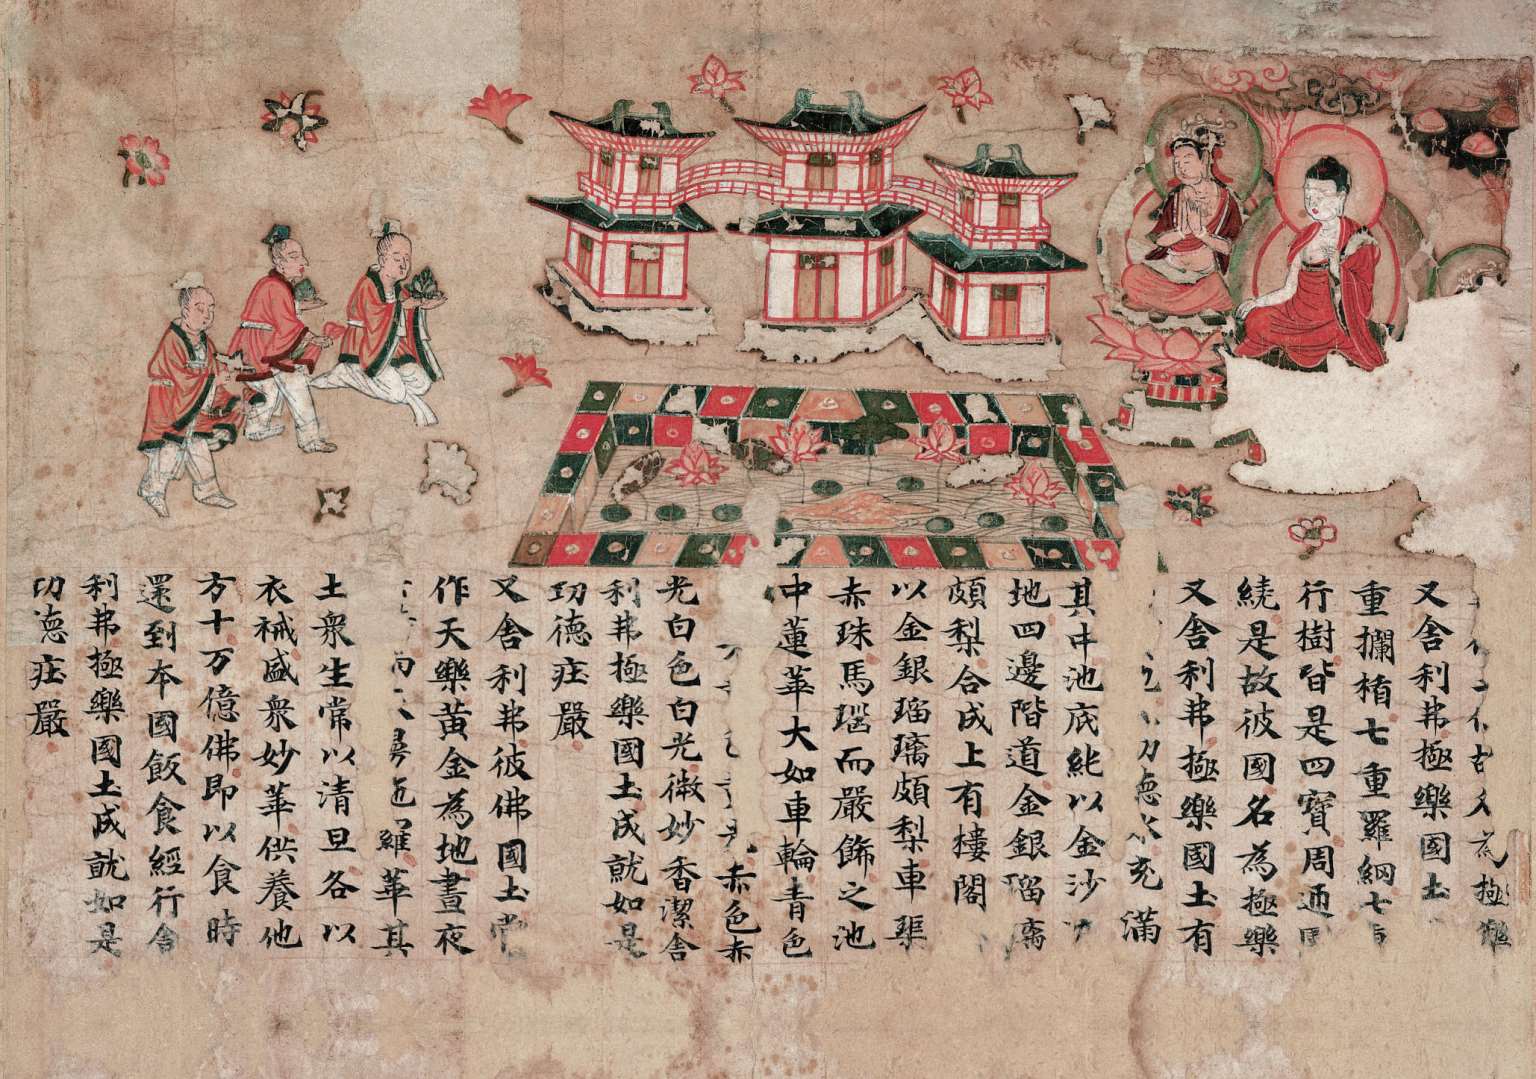 為極樂
又舍利弗極樂國土
重攔楯七重羅網七重
行樹皆是四寶周通
繞是故彼國名為極樂
又舍利弗極樂國土有
功德水充滿
其中池底純以金沙
地四邊階道金銀瑠璃
頗梨合成上有樓閣
以金銀瑠璃頗梨車璖
赤珠馬瑙而嚴飾之池
中蓮華大如車輪青色
光赤色赤
光白色白光微妙香潔舍
利弗極樂國土成就如是
功德莊嚴
又舍利弗彼佛國土常
作天樂黃金為地晝夜
雨天曼陀羅華其
土眾生常以清旦各以
衣祴盛眾妙華供養他
方十万億佛即以食時
還到本國飯食經行舍
利弗極樂國土成就如是
功德莊嚴